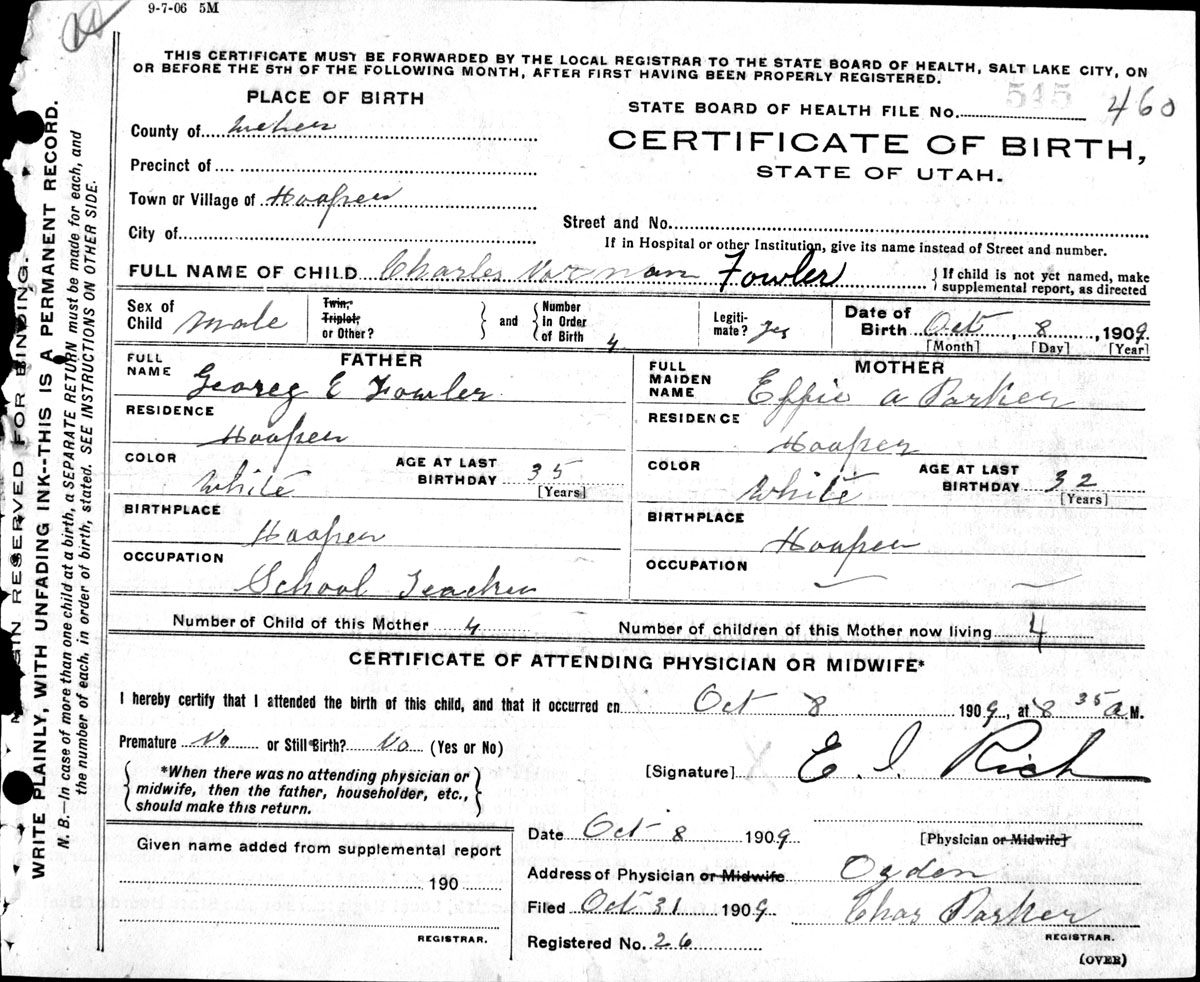 9-7-06 5M
THIS CERTIFICATE MUST BE FORWARDED BY THE LOCAL REGISTRAR TO THE STATE BOARD OF HEALTH, SALT LAKE CITY, ON
OR BEFORE THE 5TH OF THE FOLLOWING MONTH, AFTER FIRST HAVING BEEN PROPERLY REGISTERED.
PLACE OF BIRTH
STATE BOARD OF HEALTH FILE No. 545 460
County of Weber
CERTIFICATE OF BIRTH,
STATE OF UTAH.
Precinct of
Town or Village of Hooper
Street and No.
City of
If in Hospital or other Institution, give its name instead of Street and number.
FULL NAME OF CHILD Charles Norman Fowler
{If child is not yet named, make
supplemental report, as directed
Sex of
Child male
Twin,
Triplet,
or Other?
} and {
Number
in Order
of Birth 4
Legiti-
mate? yes
Date of
Birth Oct, 8, 1909.
[Month] [Day] [Year]
FATHER
FULL
NAME Georeg E Fowler
RESIDENCE
Hooper
COLOR
White
AGE AT LAST
BIRTHDAY 35
[Years]
BIRTHPLACE
Hooper
OCCUPATION
School Teacher
MOTHER
FULL
MAIDEN
NAME Effie a Parker
RESIDENCE
Hooper
COLOR
White
AGE AT LAST
BIRTHDAY 32
[Years]
BIRTHPLACE
Hooper
OCCUPATION
Number of Child of this Mother 4
Number of children of this Mother now living 4
CERTIFICATE OF ATTENDING PHYSICIAN OR MIDWIFE*
I hereby certify that I attended the birth of this child, and that it occurred on Oct 8 1909, at 8 35 a M.
Premature No or Still Birth? No (Yes or No)
{*When there was no attending physician or
midwife, then the father, householder, etc.,
should make this return.}
[Signature] E. I Rich
[Physician or Midwife]
Date Oct 8 1909
Address of Physician or Midwife Ogden
Filed Oct 31 1909 Chas Parker
REGISTRAR.
Registered No. 26
(OVER)
Given name added from supplemental report
190
REGISTRAR.
MARGIN RESERVED FOR BINDING.
WRITE PLAINLY, WITH UNFADING INK--THIS IS A PERMANENT RECORD.
N. B.—In case of more than one child at a birth, a SEPARATE RETURN must be made for each, and
the number of each, in order of birth, stated. SEE INSTRUCTIONS ON OTHER SIDE.